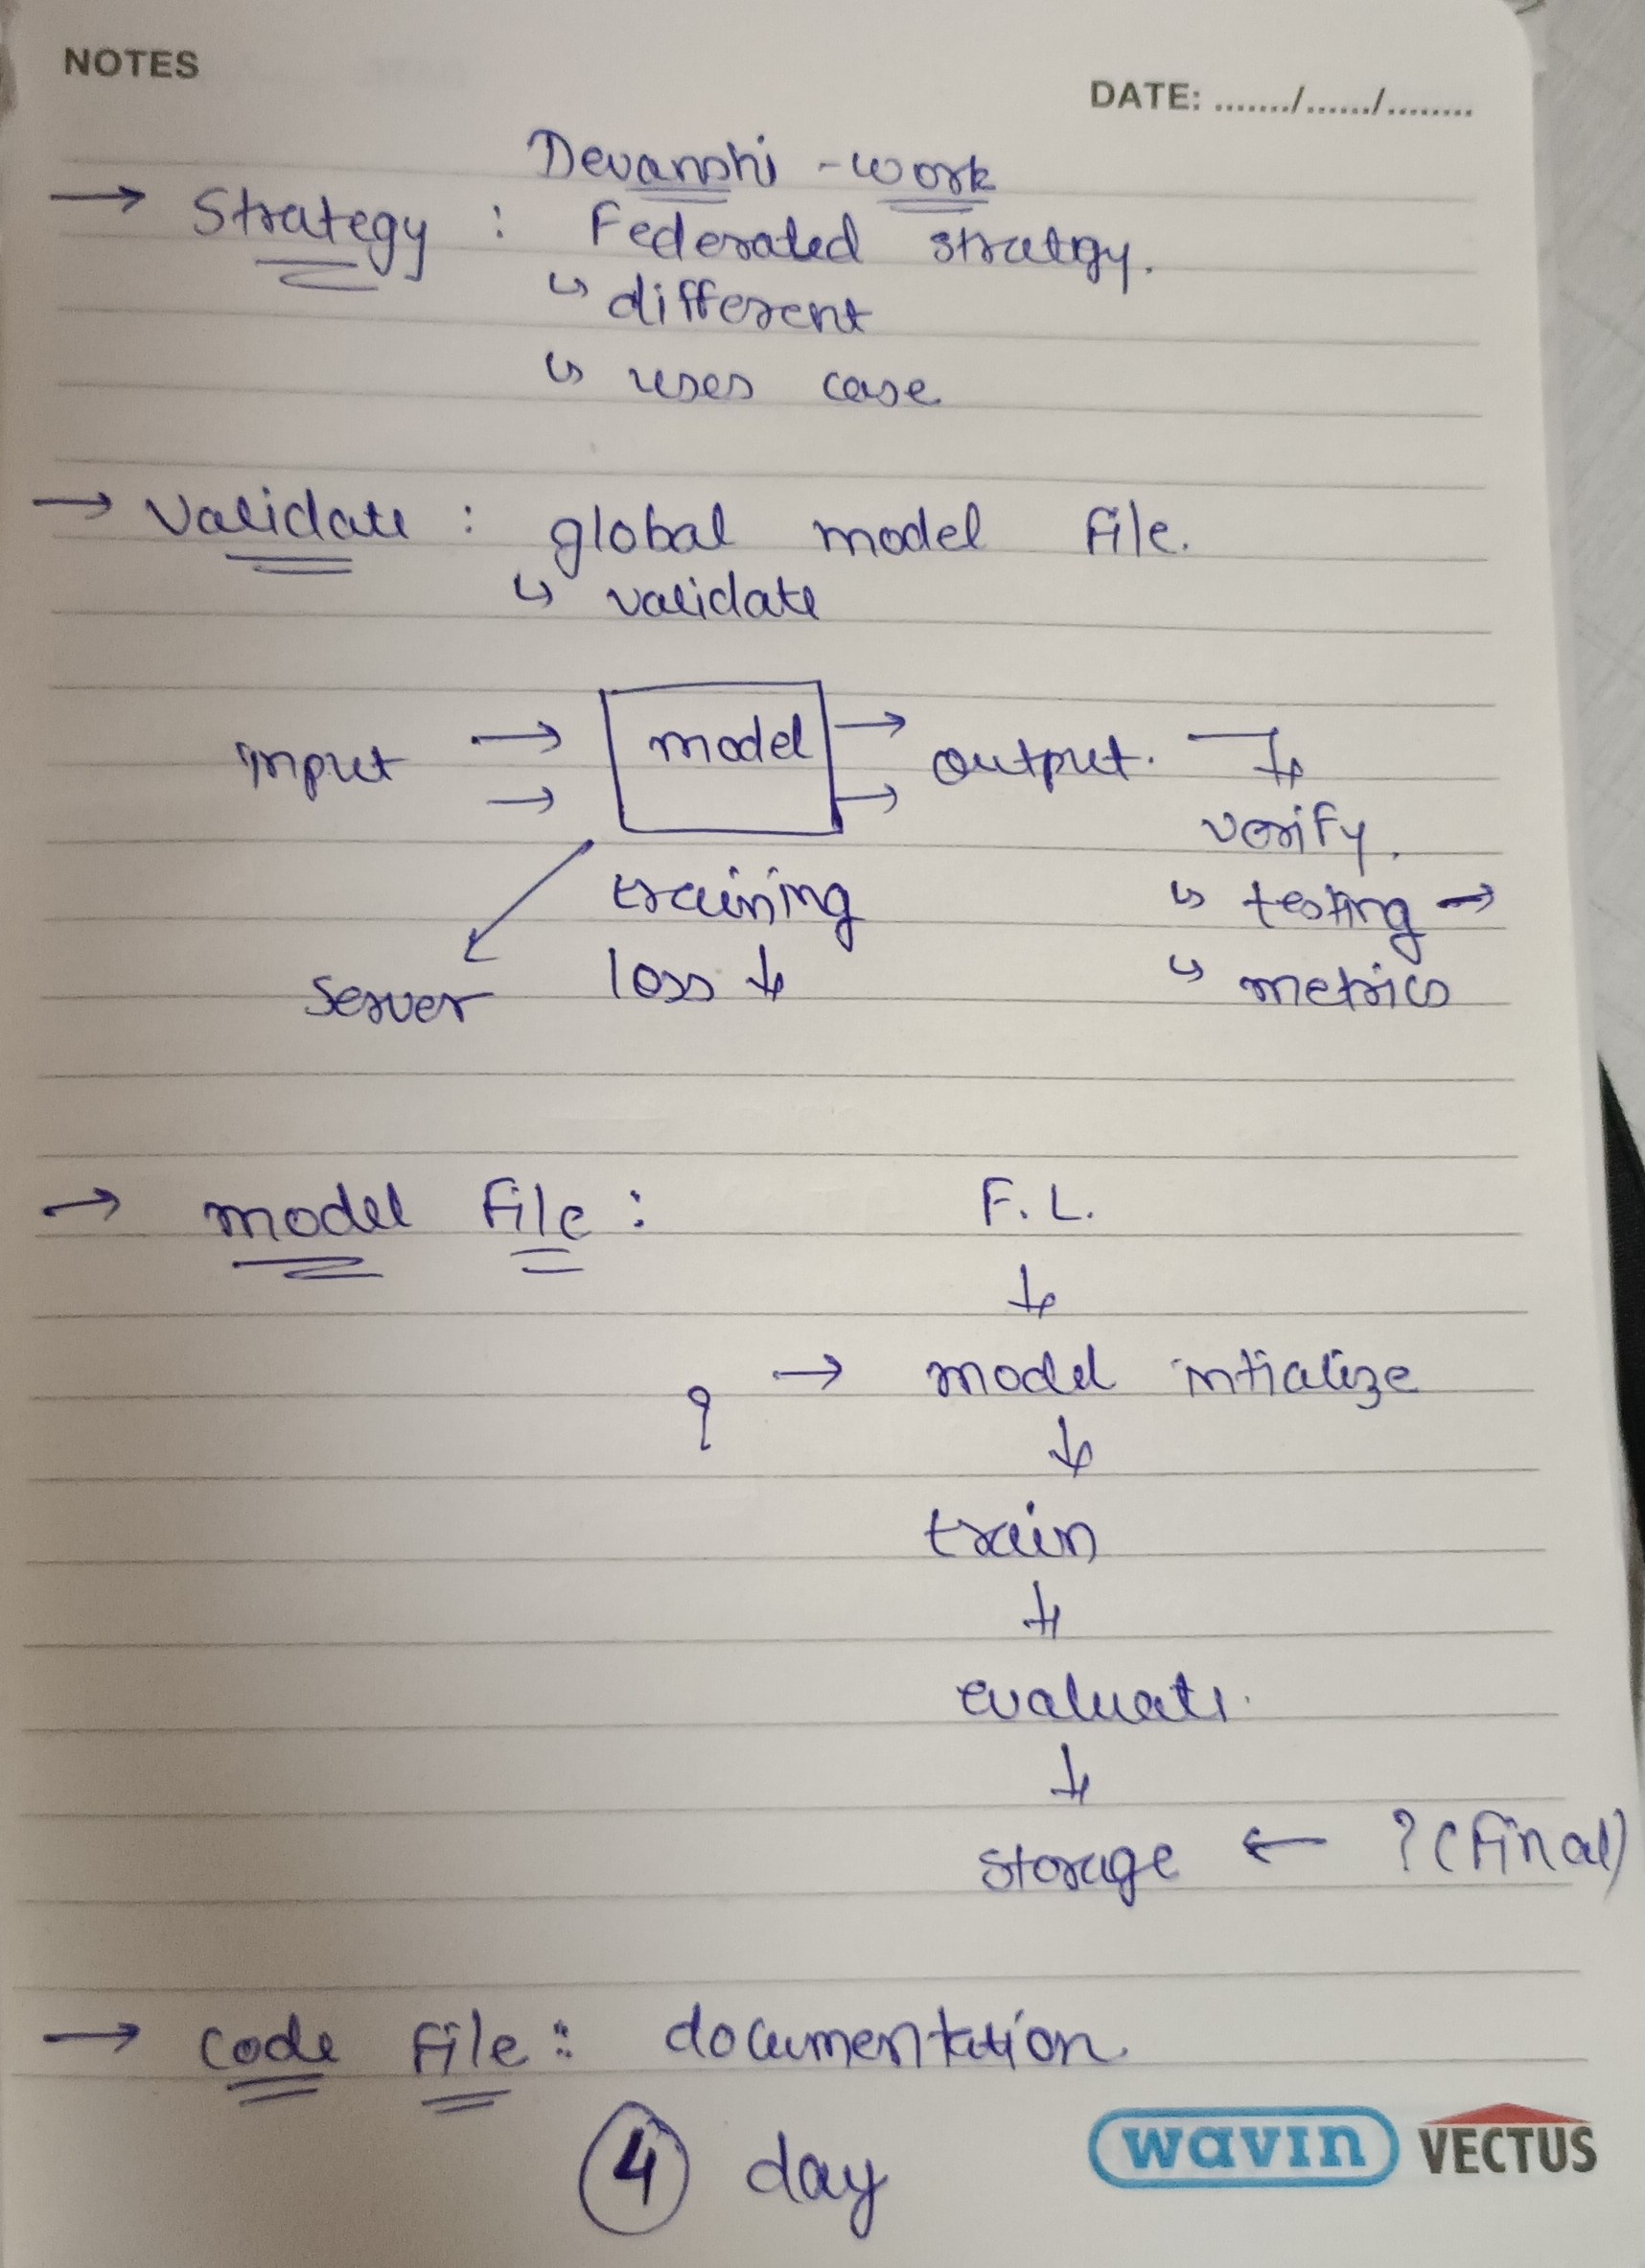 NOTES
DATE: ......./....../........
Devanshi - work
→ Strategy : Federated stratgy.
↳ different
↳ uses case
→ Validate : global model file.
↳ validate
input → → model → → output. → ↓
verify.
training
↳ testing →
server
loss ↓
↳ metrics
→ model file : F.L.
↓
? → model intialize
↓
train
↓
evaluate.
↓
storage ← ? (final)
→ code file : documentation.
4 day
wavin VECTUS